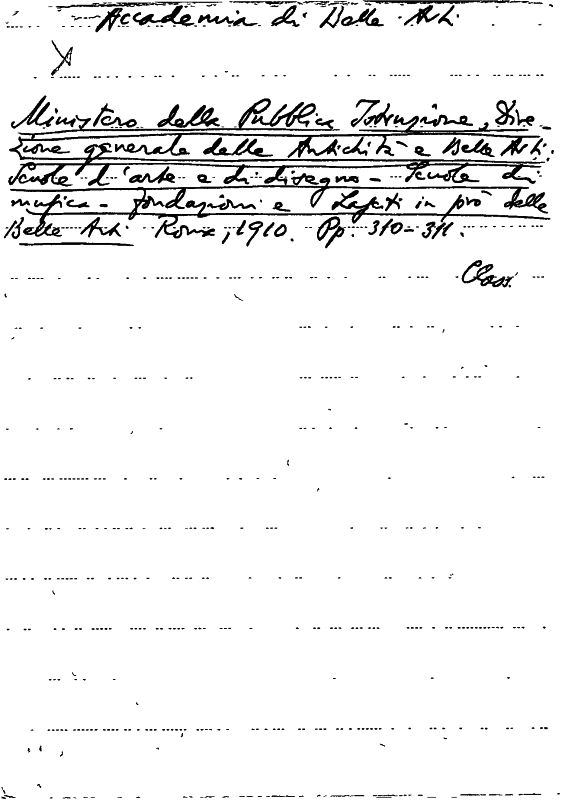 Accademia di Belle Arti
X
Ministero della Pubblica Istruzione, Dire-
zione generale delle Antichità e Belle Arti.
Scuole d'arte e di disegno - Scuole di
musica - fondazioni e Lasciti in prò delle
Belle Arti Roma, 1910. Pp. 310-311.
Class.